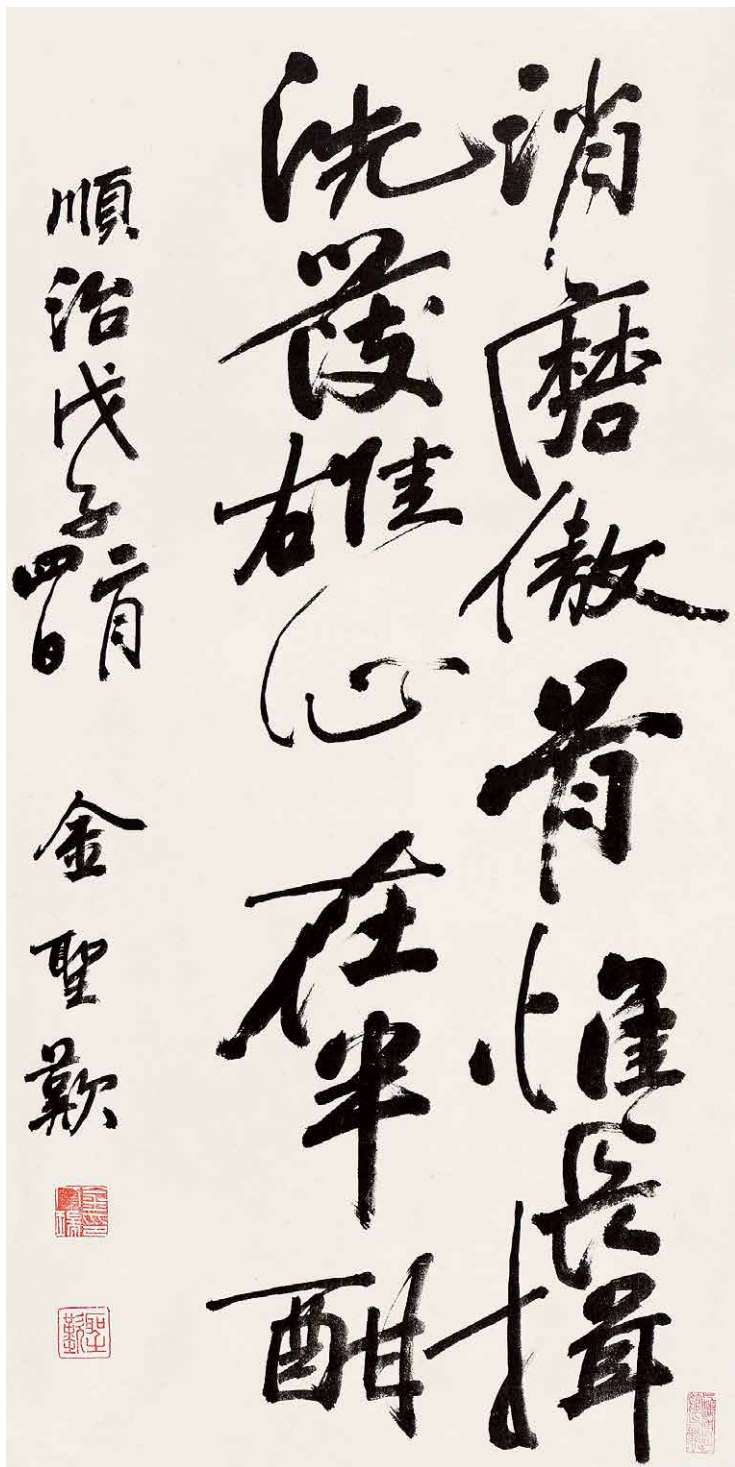 消磨傲骨惟長揖
洗發雄心在半酣
順治戊子二月四日 金聖歎
聖歎